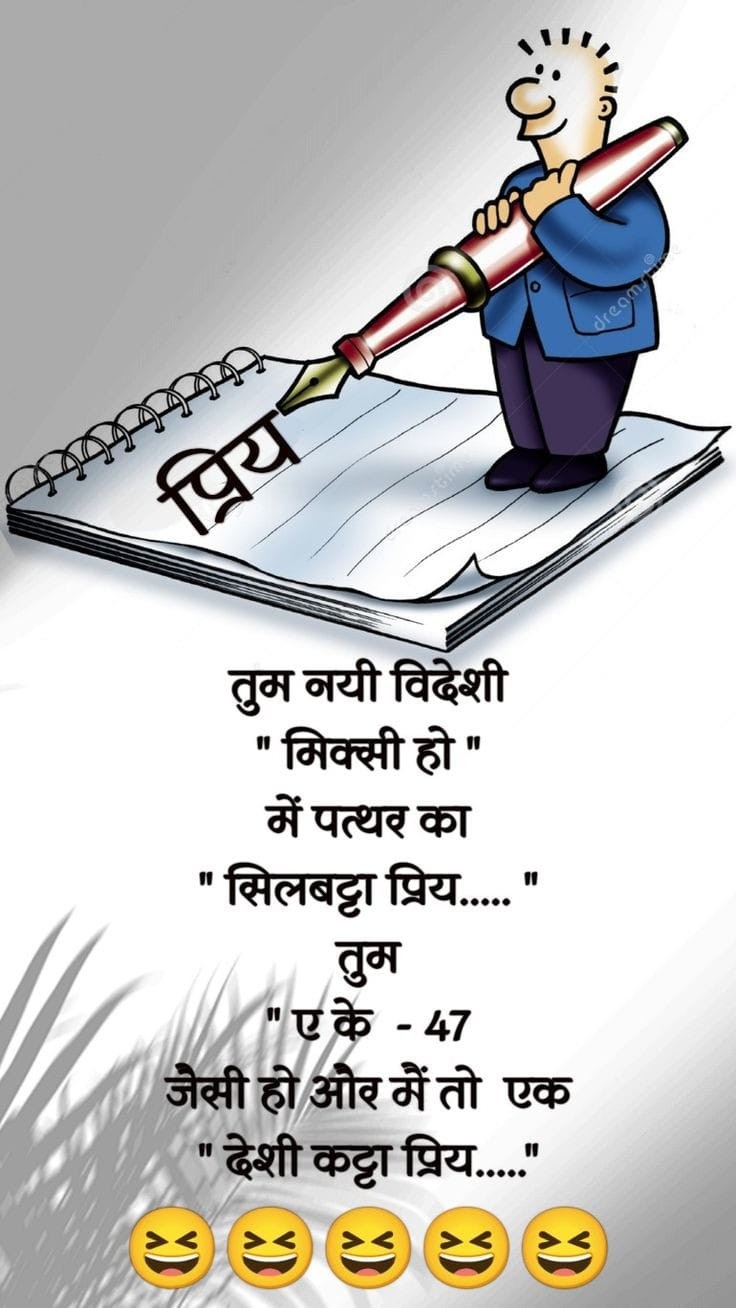 प्रिय
dreamstime
तुम नयी विदेशी
" मिक्सी हो "
में पत्थर का
" सिलबट्टा प्रिय..... "
तुम
" ए के - 47
जैसी हो और मैं तो एक
" देशी कट्टा प्रिय....."